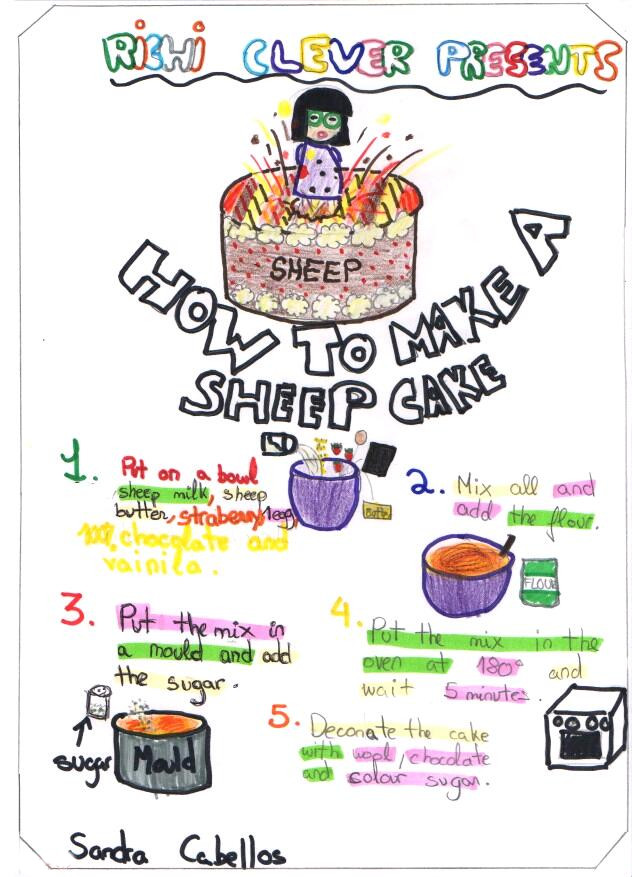 RICHI CLEVER PRESENTS
SHEEP
HOW TO MAKE A
SHEEP CAKE
1. Put on a bowl
sheep milk, sheep
butter, straberry, 1egg,
100% chocolate and
vainila.
2. Mix all and
add the flour.
FLOUR
3. Put the mix in
a mould and add
the sugar.
sugar
Mould
4. Put the mix in the
oven at 180º and
wait 5 minutes.
5. Decorate the cake
with wool, chocolate
and colour sugar.
Sandra Cabellos